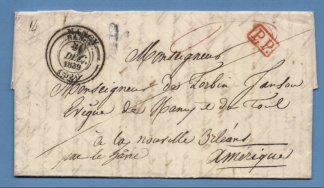 NANCY
DEC.
1839
(52)
P.P.
Monseigneur
Monseigneur de Forbin Janson
Evêque de Nancy et de Toul
à la nouvelle Orléans
par le Havre Amérique